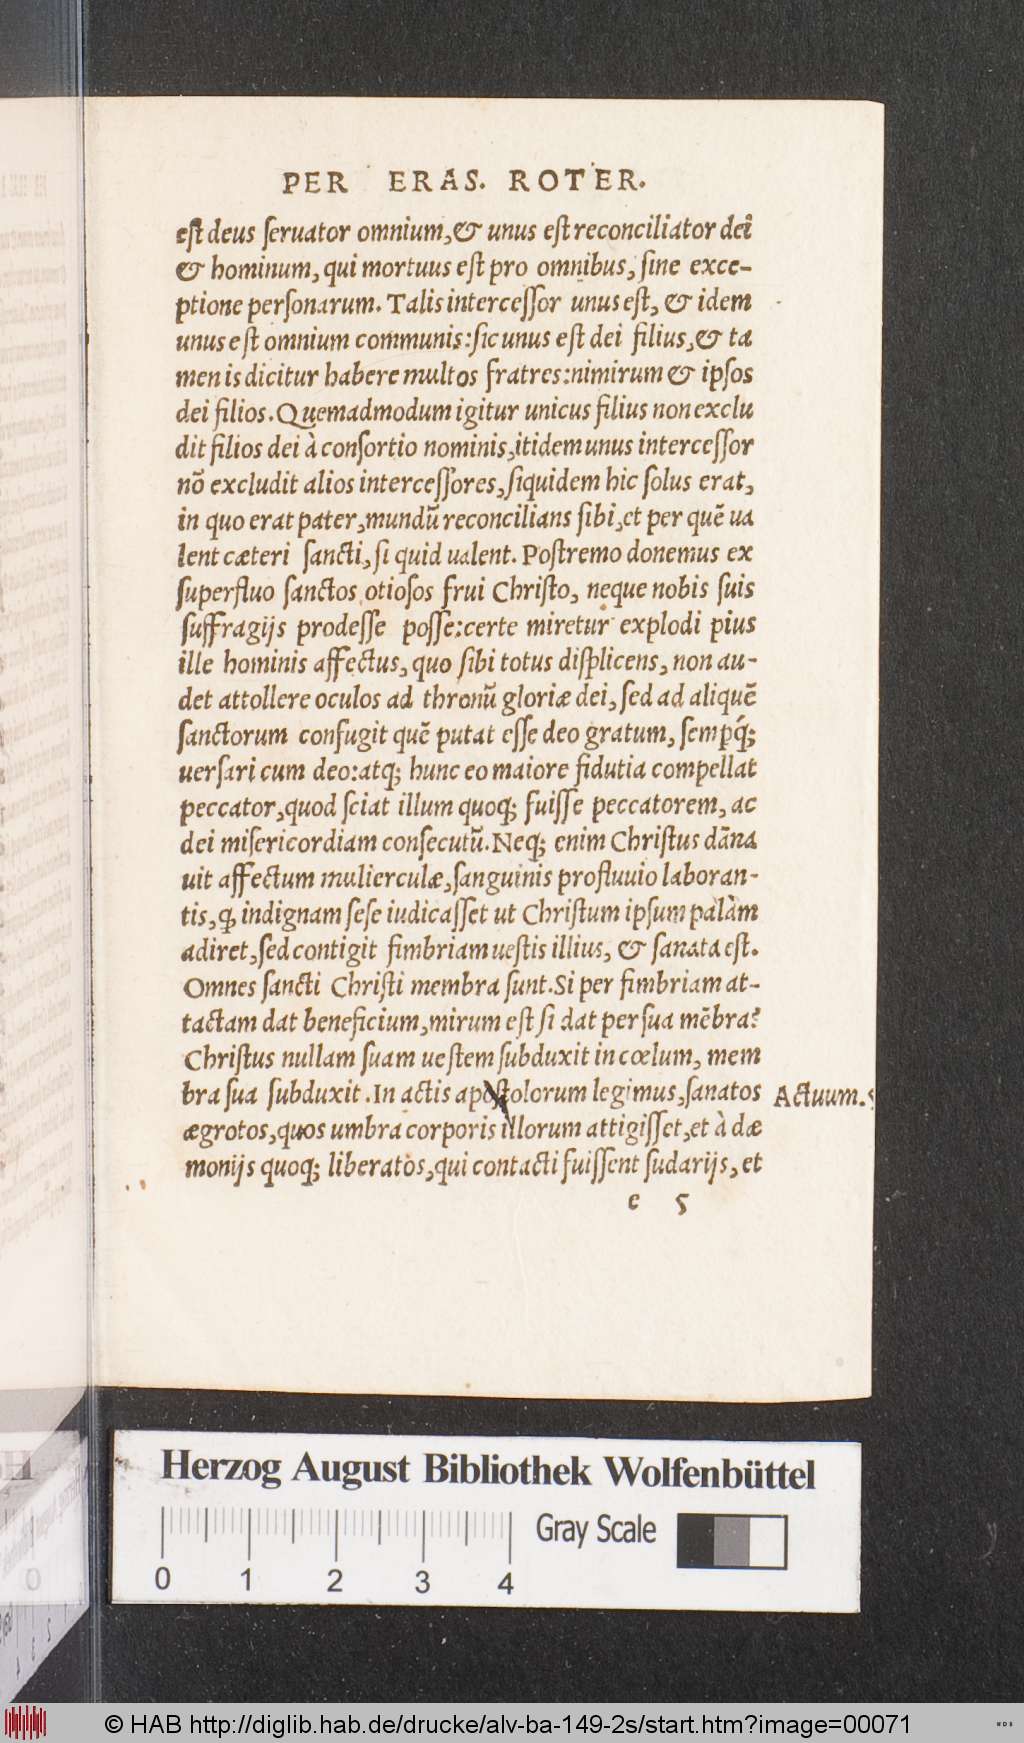 PER ERAS. ROTER.
est deus ſeruator omnium, & unus eſt reconciliator dei
& hominum, qui mortuus eſt pro omnibus, ſine exce-
ptione perſonarum. Talis interceſſor unus eſt, & idem
unus eſt omnium communis: ſic unus eſt dei filius, & ta
men is dicitur habere multos fratres: nimirum & ipſos
dei filios. Quemadmodum igitur unicus filius non exclu
dit filios dei à conſortio nominis, itidem unus interceſſor
nō excludit alios interceſſores, ſiquidem hic ſolus erat,
in quo erat pater, mundū reconcilians ſibi, et per quē ua
lent cæteri ſancti, ſi quid ualent. Poſtremo donemus ex
ſuperfluo ſanctos otioſos frui Chriſto, neque nobis ſuis
ſuffragijs prodeſſe poſſe: certe miretur explodi pius
ille hominis affectus, quo ſibi totus diſplicens, non au-
det attollere oculos ad thronū gloriæ dei, ſed ad aliquē
ſanctorum confugit quē putat eſſe deo gratum, ſemperq́;
uerſari cum deo: atq; hunc eo maiore fidutia compellat
peccator, quod ſciat illum quoq; fuiſſe peccatorem, ac
dei miſericordiam conſecutū. Neq; enim Chriſtus dāna
uit affectum mulierculæ, ſanguinis profluuio laboran-
tis, ꝗ indignam ſeſe iudicaſſet ut Chriſtum ipſum palàm
adiret, ſed contigit fimbriam ueſtis illius, & ſanata eſt.
Omnes ſancti Chriſti membra ſunt. Si per fimbriam at-
tactam dat beneficium, mirum eſt ſi dat per ſua mēbra?
Chriſtus nullam ſuam ueſtem ſubduxit in cœlum, mem
bra ſua ſubduxit. In actis apoſtolorum legimus, ſanatos Actuum. 5
ægrotos, quos umbra corporis illorum attigiſſet, et à dæ
monijs quoq; liberatos, qui contacti fuiſſent ſudarijs, et
e 5
Herzog August Bibliothek Wolfenbüttel
0 1 2 3 4
Gray Scale
© HAB http://diglib.hab.de/drucke/alv-ba-149-2s/start.htm?image=00071